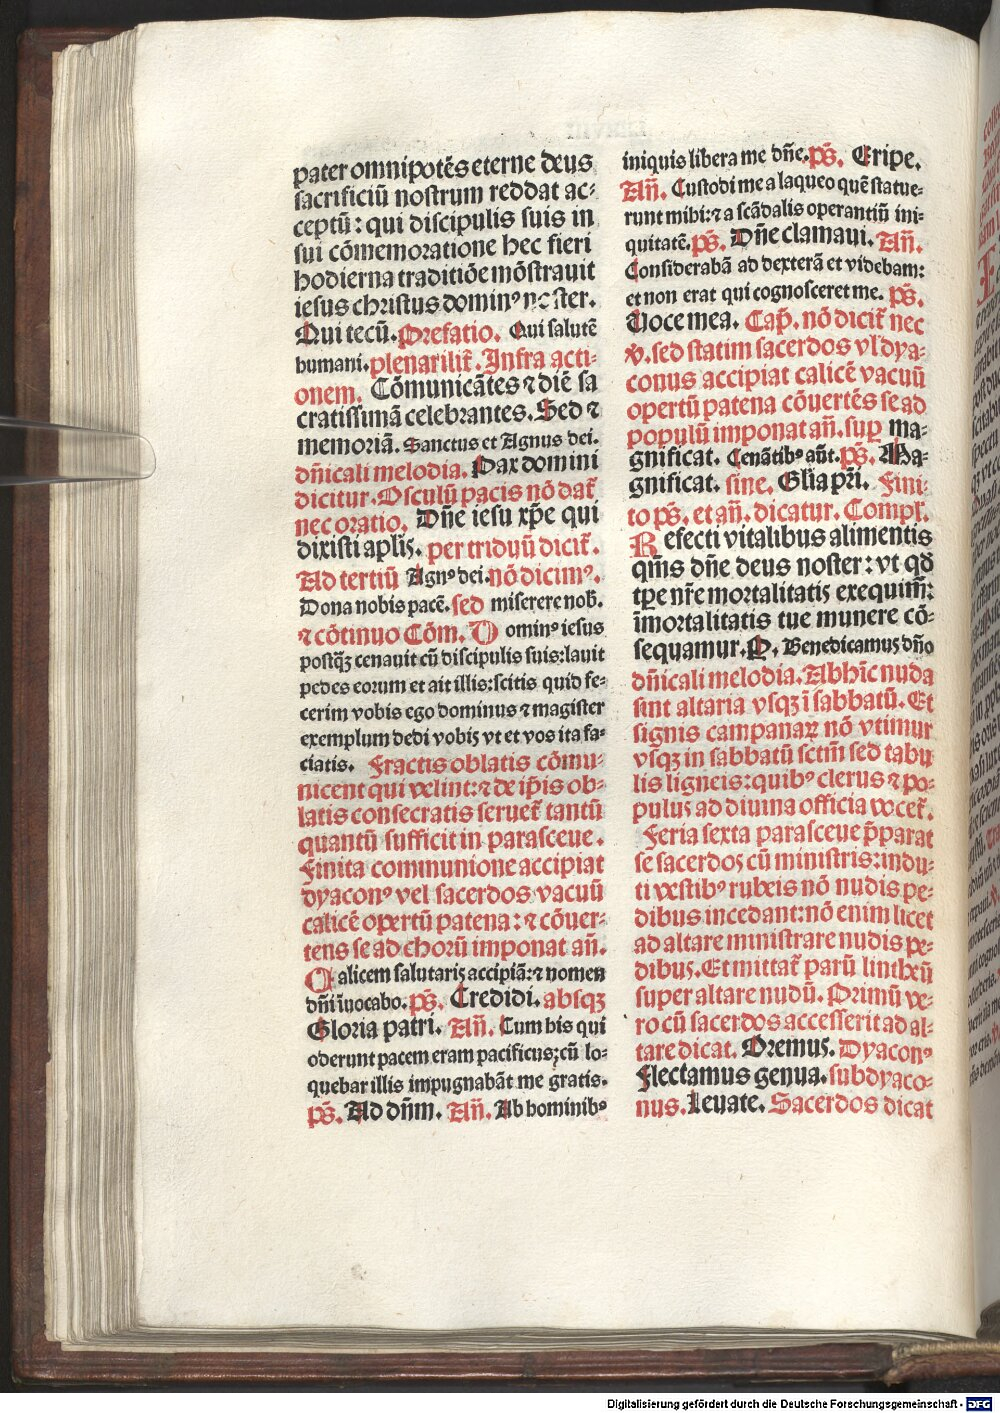 pater omnipotẽs eterne deus
sacrificiũ nostrum reddat ac⸗
ceptũ: qui discipulis suis in
sui cõmemoratione hec fieri
hodierna traditiõe mõstrauit
iesus christus dominꝰ noster.
Qui tecũ. Prefatio. Qui salutẽ
humani. plenarilit̃. Infra acti⸗
onem. Cõmunicãtes ⁊ diẽ sa
cratissimã celebrantes. Sed ⁊
memoriã. Sanctus et Agnus dei.
dñicali melodia. Pax domini
dicitur. Osculũ pacis nõ dat̃
nec oratio. Dñe iesu xp̃e qui
dixisti aplis̃. per triduũ dicit̃.
Ad tertiũ Agnꝰ dei. nõ dicimꝰ.
Dona nobis pacẽ. sed miserere nob̃.
⁊ cõtinuo Cõm. Dominꝰ iesus
postqꝫ cenauit cũ discipulis suis: lauit
pedes eorum et ait illis: scitis quid fe⸗
cerim vobis ego dominus ⁊ magister
exemplum dedi vobis vt et vos ita fa⸗
ciatis. Fractis oblatis cõmu⸗
nicent qui velint: ⁊ de ip̃is ob⸗
latis consecratis seruet̃ tantũ
quantũ sufficit in parasceue.
Finita communione accipiat
dyaconꝰ vel sacerdos vacuũ
calicẽ opertũ patena: ⁊ cõuer⸗
tens se ad chorũ imponat añ.
Calicem salutaris accipiã: ⁊ nomen
dñi ĩuocabo. pš. Credidi. absqꝫ
Gloria patri. Añ. Cum his qui
oderunt pacem eram pacificus: cũ lo⸗
quebar illis impugnabãt me gratis.
pš. Ad dñm. Añ. Ab hominibꝰ
iniquis libera me dñe. pš. Eripe.
Añ. Custodi me a laqueo quẽ statue⸗
runt mihi: ⁊ a scãdalis operantiũ ini⸗
quitatẽ. pš. Dñe clamaui. Añ.
Considerabã ad dexterã et videbam:
et non erat qui cognosceret me. pš.
Uoce mea. Cap̃. nõ dicit̃ nec
v̾. sed statim sacerdos vl̃ dya⸗
conus accipiat calicẽ vacuũ
opertũ patena cõuertẽs se ad
populũ imponat añ. suꝑ ma⸗
gnificat. Cenãtibꝰ aũt. pš. Ma⸗
gnificat. sine. Glia pr̃i. Fini⸗
to pš. et añ. dicatur. Compl̃.
Refecti vitalibus alimentis
qm̃s dñe deus noster: vt qđ
tp̃e nr̃e mortalitatis exequim̃:
ĩmortalitatis tue munere cõ⸗
sequamur. P. Benedicamus dño
dñicali melodia. Abhĩc nuda
sint altaria vsqꝫ ĩ sabbatũ. Et
signis campanaꝝ nõ vtimur
vsqꝫ in sabbatũ sctm̃ sed tabu
lis ligneis: quibꝰ clerus ⁊ po⸗
pulus ad diuina officia vocet̃.
Feria sexta parasceue p̃parat
se sacerdos cũ ministris: indu⸗
ti vestibꝰ rubeis nõ nudis pe⸗
dibus incedant: nõ enim licet
ad altare ministrare nudis pe⸗
dibus. Et mittat̃ parũ lintheũ
super altare nudũ. Primũ ve⸗
ro cũ sacerdos accesserit ad al⸗
tare dicat. Oremus. Dyaconꝰ
Flectamus genua. subdyaco⸗
nus. Leuate. Sacerdos dicat
Digitalisierung gefördert durch die Deutsche Forschungsgemeinschaft - DFG